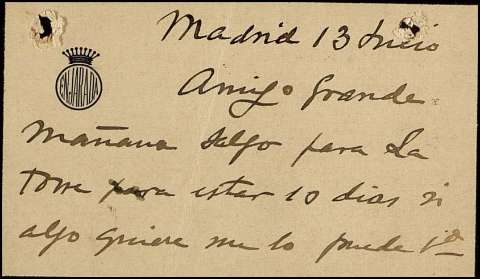 Madrid 13 Junio
ENJARADA
Amigo Grande
mañana salgo para La
Torre para estar 10 dias si
algo quiere me lo puede